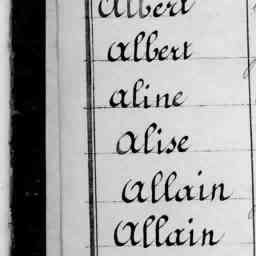 Albert
Albert
Aline
Alise
Allain
Allain